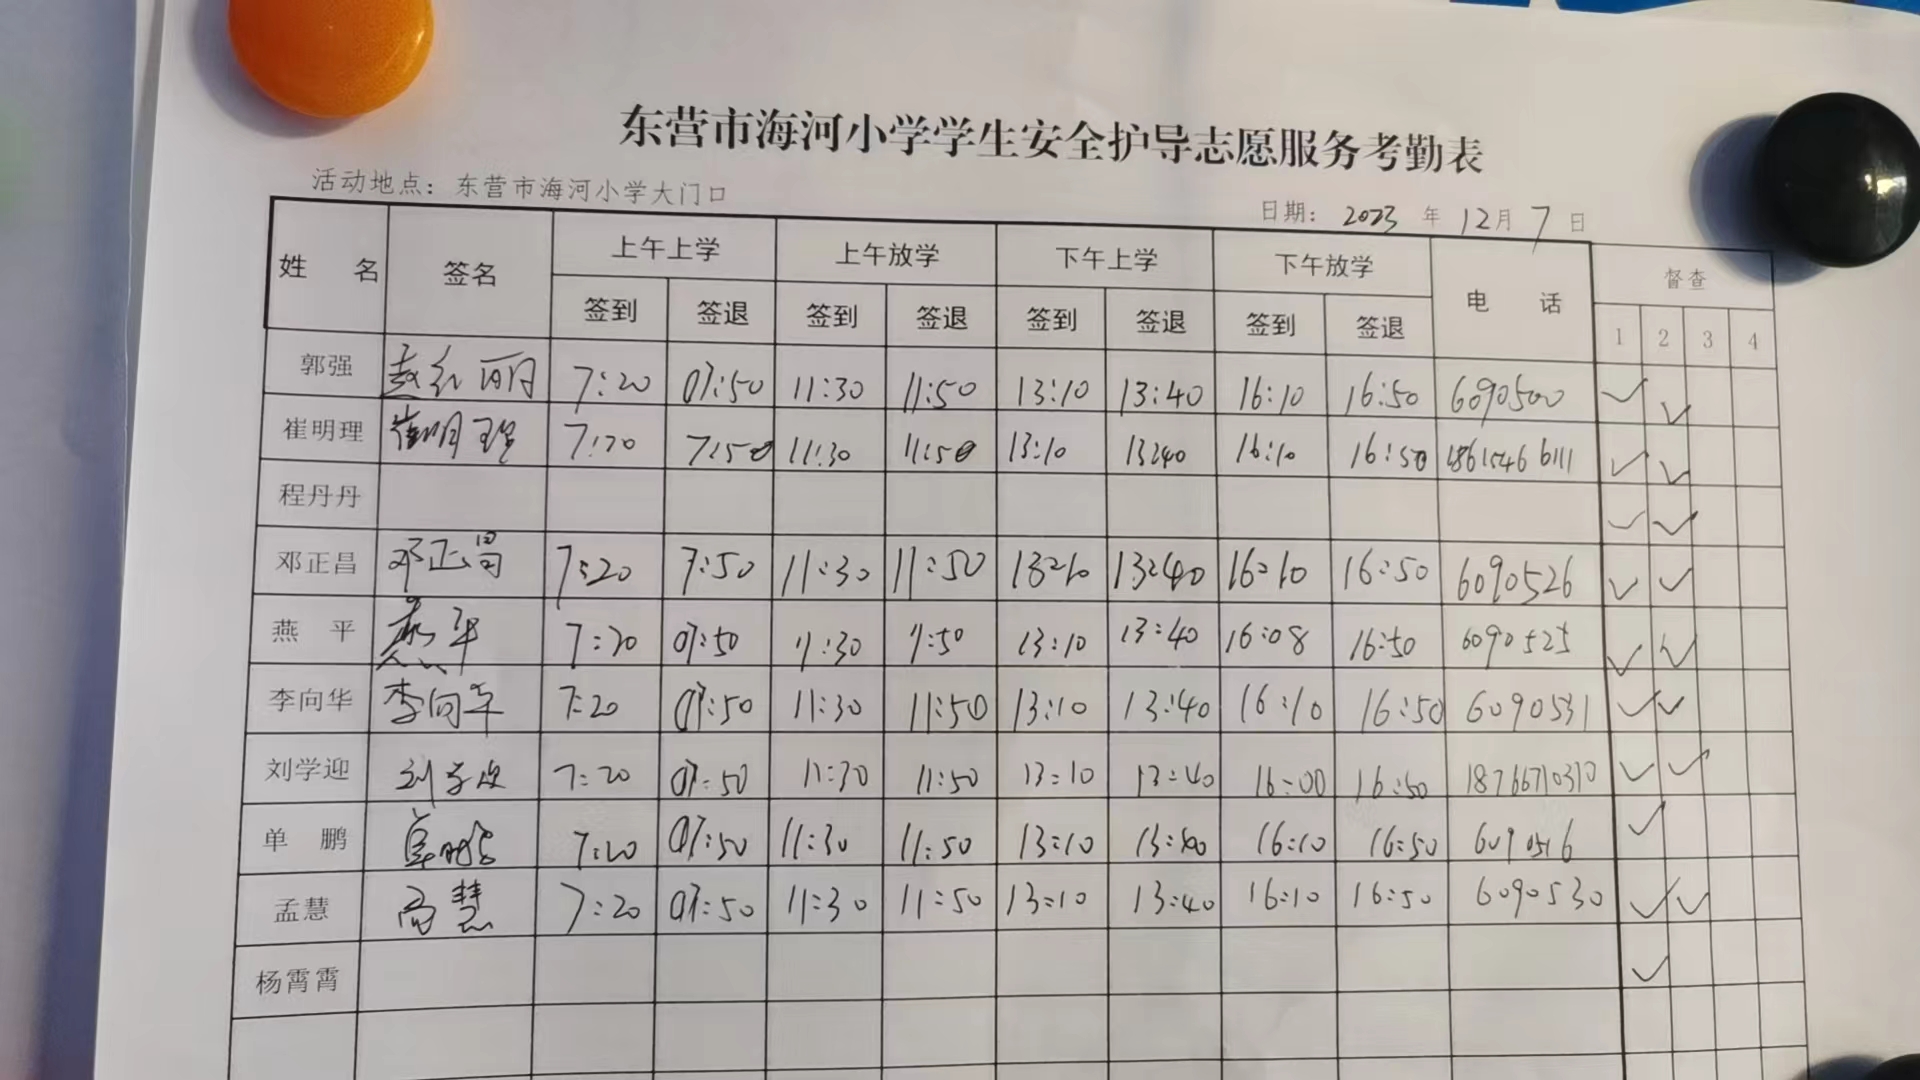 东营市海河小学学生安全护导志愿服务考勤表
活动地点：东营市海河小学大门口
日期： 2023 年 12月 7 日
姓 名 签名 上午上学 上午放学 下午上学 下午放学 电 话 督查
签到 签退 签到 签退 签到 签退 签到 签退 1 2 3 4
郭强 赵红丽 7:20 07:50 11:30 11:50 13:10 13:40 16:10 16:50 6090500 ✓ ✓
崔明理 崔明理 7:20 7:50 11:30 11:50 13:10 13:40 16:10 16:50 18615466111 ✓ ✓
程丹丹 ✓ ✓
邓正昌 邓正昌 7:20 7:50 11:30 11:50 13:10 13:40 16:10 16:50 6090526 ✓ ✓
燕 平 燕平 7:20 07:50 11:30 11:50 13:10 13:40 16:08 16:50 6090525 ✓ ✓
李向华 李向华 7:20 07:50 11:30 11:50 13:10 13:40 16:10 16:50 6090531 ✓ ✓
刘学迎 刘学迎 7:20 07:50 11:30 11:50 13:10 13:40 16:00 16:50 18766710310 ✓ ✓
单 鹏 单鹏 7:20 07:50 11:30 11:50 13:10 13:40 16:10 16:50 6090516 ✓
孟慧 慧 7:20 07:50 11:30 11:50 13:10 13:40 16:10 16:50 6090530 ✓ ✓
杨霄霄 ✓